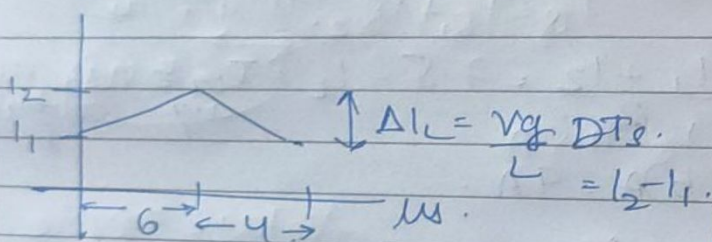 I2
I1
ΔIL = Vg/L DTs.
= I2 - I1.
6 4 μs.